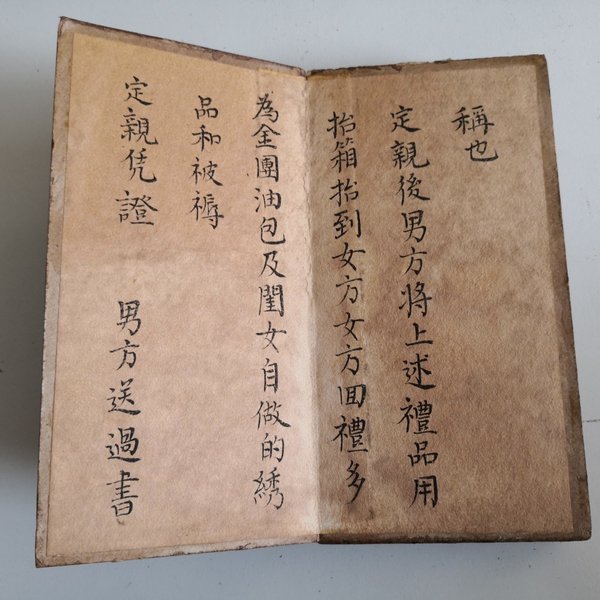 稱也
定親後男方將上述禮品用
抬箱抬到女方女方回禮多
為金團油包及閨女自做的綉
品和被褥
定親凭證 男方送過書